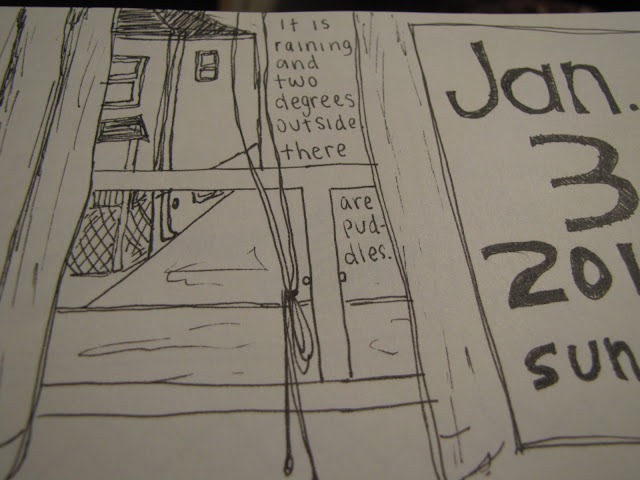 it is
raining
and
two
degrees
outside
there
are
pud-
dles.
Jan.
3
201
sun